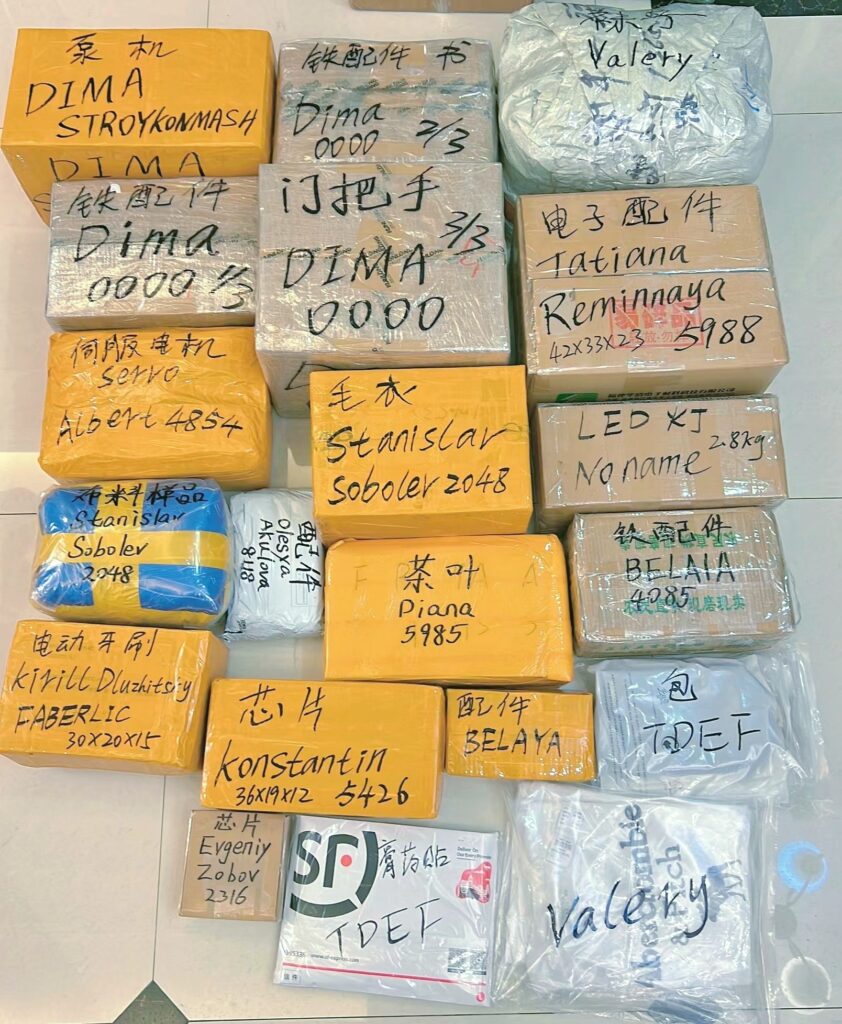 泵机
DIMA
STROYKONMASH
DIMA
铁配件 书
Dima
0000 2/3
Valery
铁配件
Dima
0000 1/3
门把手
3/3
DIMA
0000
电子配件
Tatiana
Reminnaya
42X33X23 5988
伺服电机
servo
Albert 4854
毛衣
Stanislav
Sobolev 2048
LED 灯
No name 2.8kg
布料样品
Stanislav
Sobolev
2048
配件
Olesya
Akulova
848
茶叶
Diana
5985
铁配件
BELAIA
4085
电动牙刷
Kirill Dluzhitsky
FABERLIC
30X20X15
芯片
Konstantin
36X19X12 5426
配件
BELAYA
包
TDEF
芯片
Evgeniy
Zobov
2316
SF
膏药贴
TDEF
Valery
Abercrombie
& Fitch